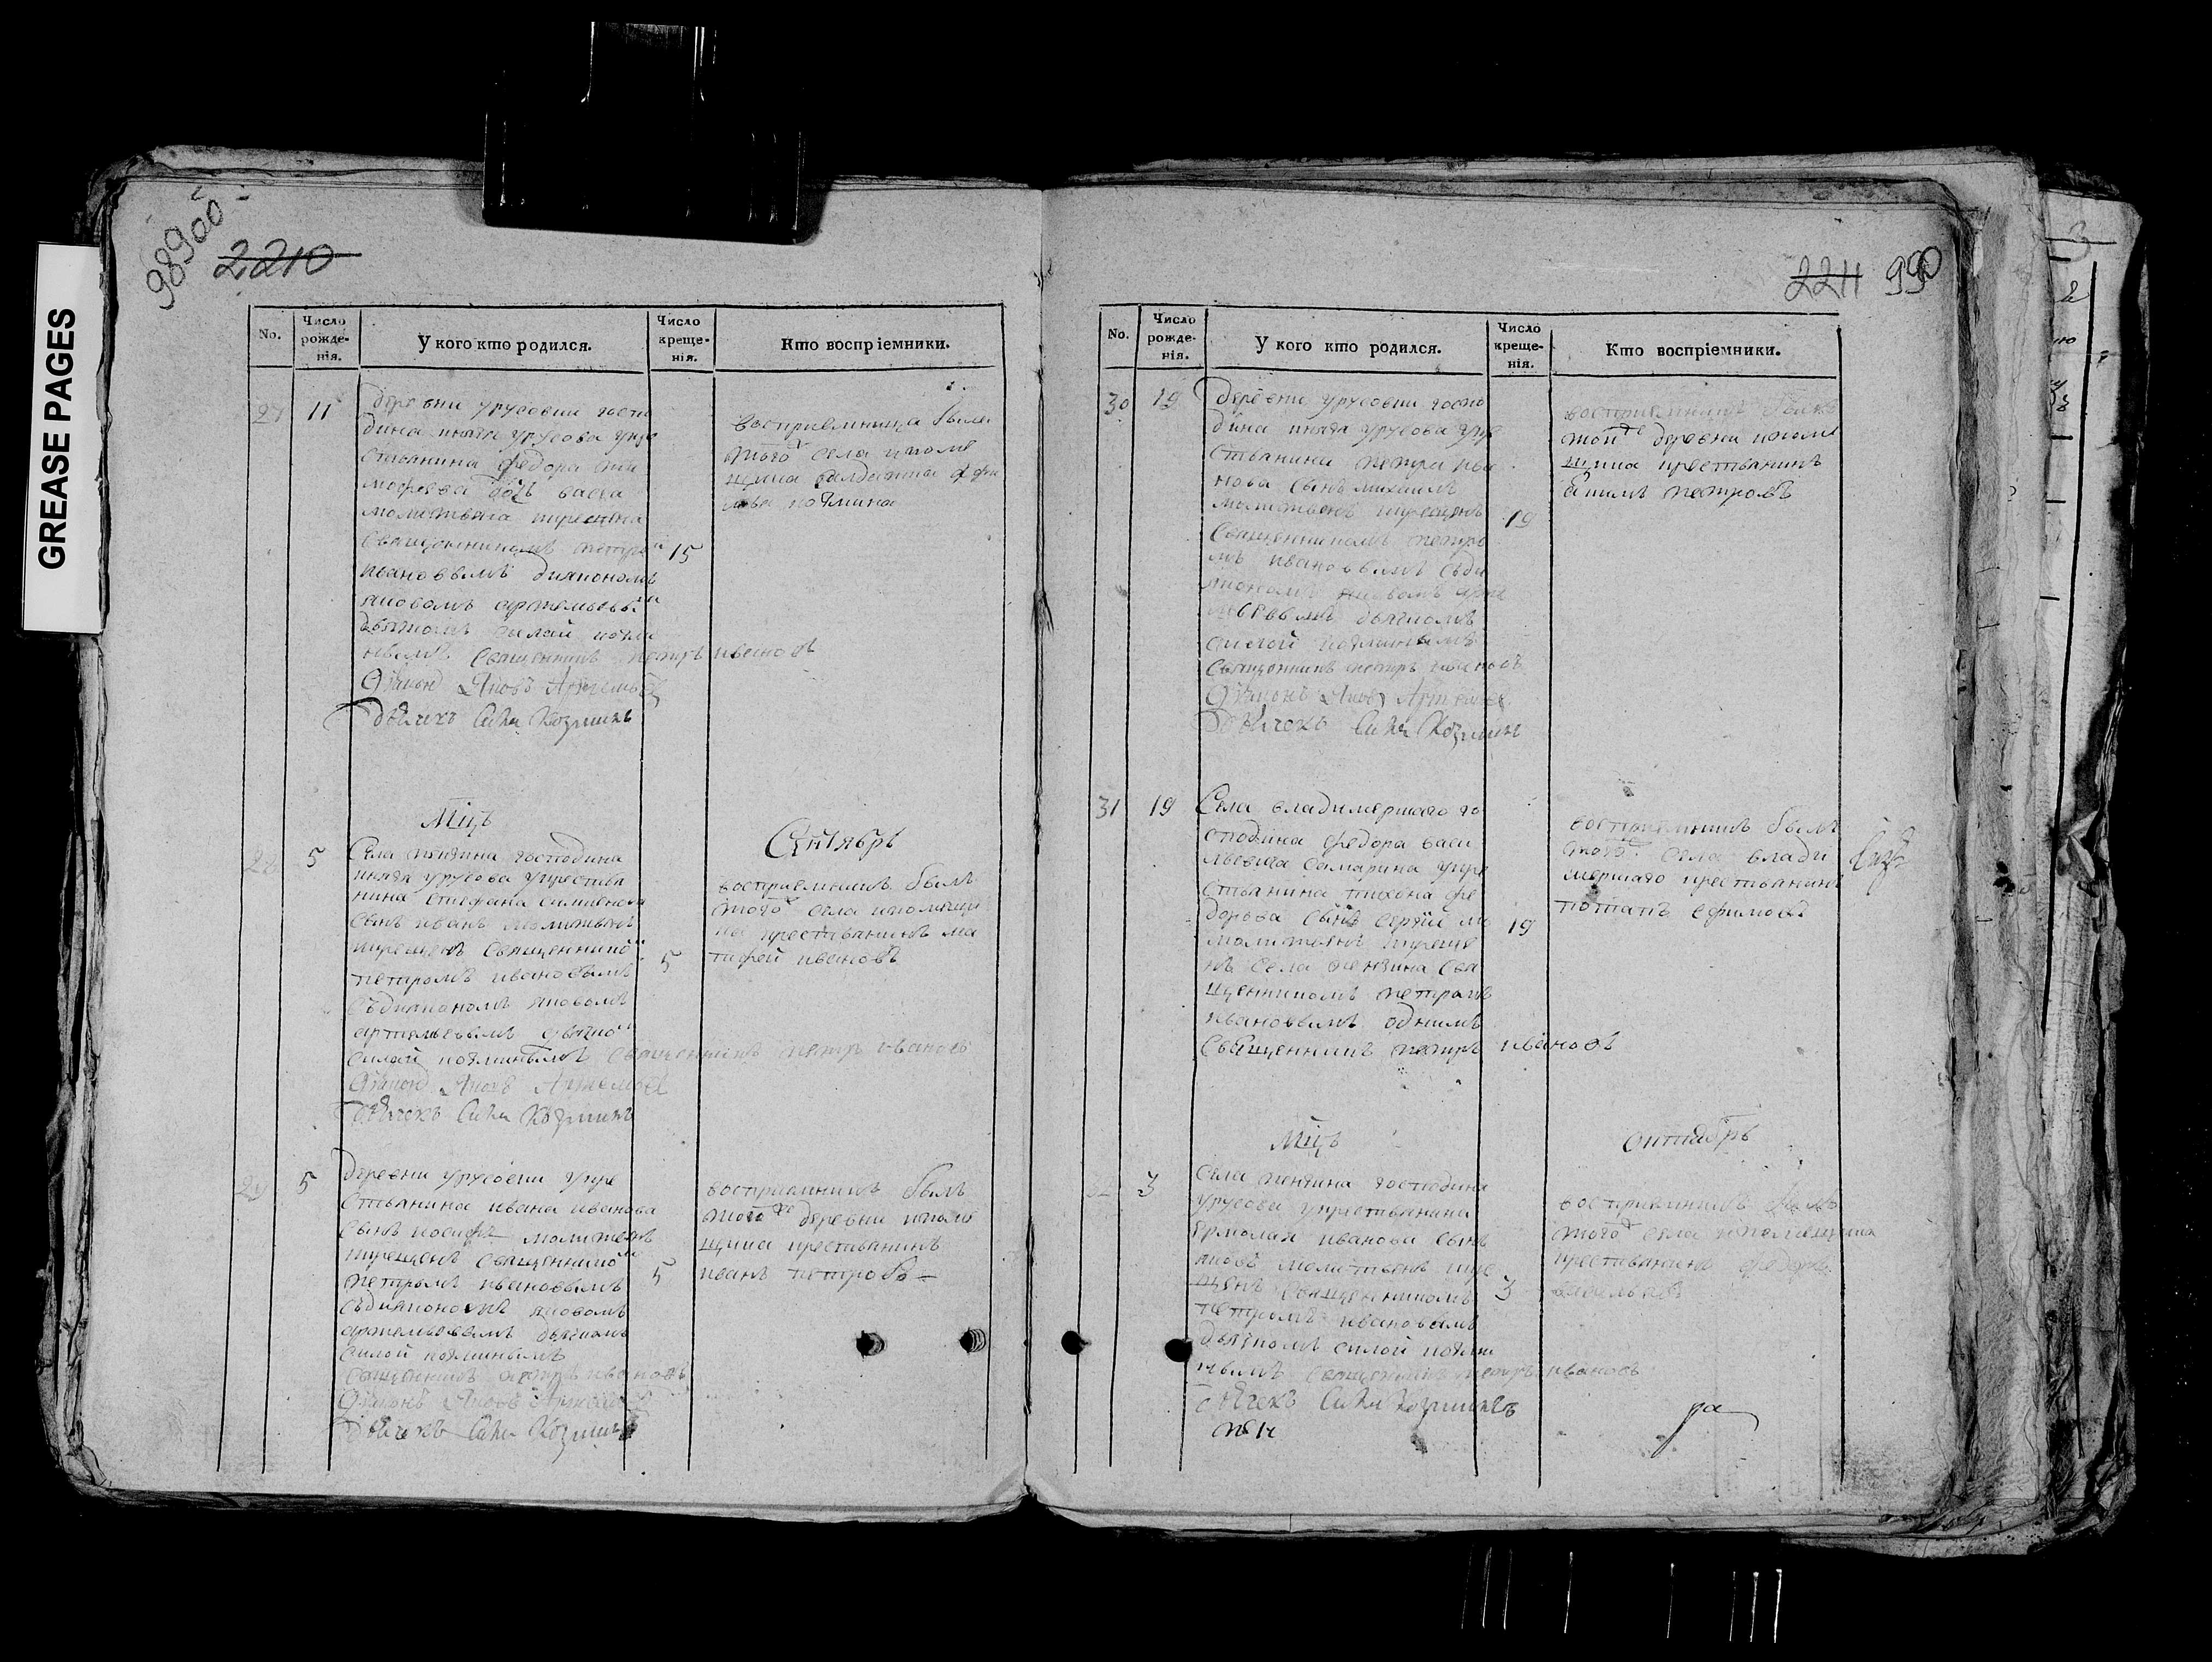 GREASE PAGES
98900
2210
No.
Число рожде-нія.
У кого кто родился.
Число креще-нія.
Кто воспріемники.
27
11
деревни урусовки госпо
дина князя урусова укре
стьянина федора ти
мофеева дочь
молитвена крещена
священникомъ петро
15
ивановымъ дияконом
яковомъ артемьевы
дьячкомъ силой козми
нымъ священникъ петръ ивановъ
Дїаконъ Яковъ Артемьевъ
Дьячекъ Сила Козминъ
восприемница была
того села
щика
козмина
Мцъ
Сентябрь
28
5
Села господина
князя урусова укрестья
нина стефана
сынъ иванъ молитвенъ
крещенъ священнико
петромъ ивановымъ
5
съдиякономъ яковомъ
артемьевымъ дьячко
силой козминымъ священникъ петръ ивановъ
Дїаконъ Яковъ Артемьевъ
Дьячекъ Сила Козминъ
восприемникъ былъ
того села ипомещи
ка крестьянинъ ма
твей ивановъ
29
5
деревни урусовки укре
стьянина ивана иванова
сынъ иосифъ молитвенъ
крещенъ священнико
петромъ ивановымъ
5
съдиякономъ яковомъ
артемьевымъ дьячкомъ
силой козминымъ
священникъ петръ ивановъ
Дїаконъ Яковъ Артемьевъ
Дьячекъ Сила Козминъ
восприемникъ былъ
той же деревни ипоме
щика крестьянинъ
иванъ петровъ
2211 990
No.
Число рожде-нія.
У кого кто родился.
Число креще-нія.
Кто воспріемники.
30
19
деревни урусовки госпо
дина князя урусова укре
стьянина петра ива
нова сынъ михаилъ
молитвенъ крещенъ
19
священникомъ петро
мъ ивановымъ съди
якономъ яковомъ арте
мьевымъ дьячкомъ
силой козминымъ
священникъ петръ ивановъ
Дїаконъ Яковъ Артемьевъ
Дьячекъ Сила Козминъ
восприемникъ былъ
той же деревни ипоме
щика крестьянинъ
петровъ
31
19
Села владимерскаго го
сподина федора васи
льевича самарина укре
стьянина тихона фе
дорова сынъ сергїй мо
19
молитвенъ креще
нъ села свя
щенникомъ петромъ
ивановымъ однимъ
священникъ петръ ивановъ
восприемникъ былъ
того села влади
мерскаго крестьянинъ
потапъ ефимовъ
Мцъ
октябрь
32
3
Села господина
урусова укрестьянина
ермолая иванова сынъ
яковъ молитвенъ кре
щенъ священникомъ
3
петромъ ивановымъ
дьячкомъ силой козми
нымъ священникъ петръ ивановъ
Дьячекъ Сила Козминъ
восприемникъ былъ
того села ипомещика
крестьянинъ федоръ